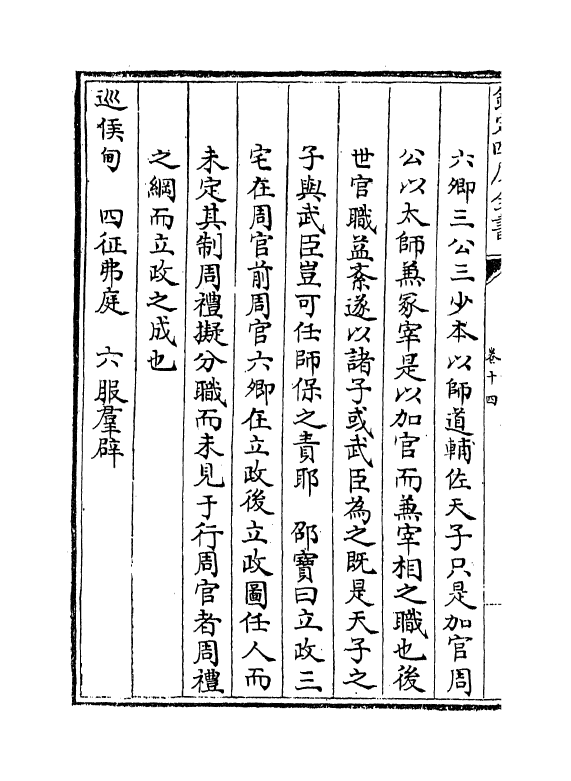 欽定四庫全書
卷十四
六卿三公三少本以師道輔佐天子只是加官周
公以太師兼冢宰是以加官而兼宰相之職也後
世官職益紊遂以諸子或武臣為之既是天子之
子與武臣豈可任師保之責耶　邵寶曰立政三
宅在周官前周官六卿在立政後立政圖任人而
未定其制周禮擬分職而未見于行周官者周禮
之綱而立政之成也
巡侯甸　四征弗庭　六服羣辟